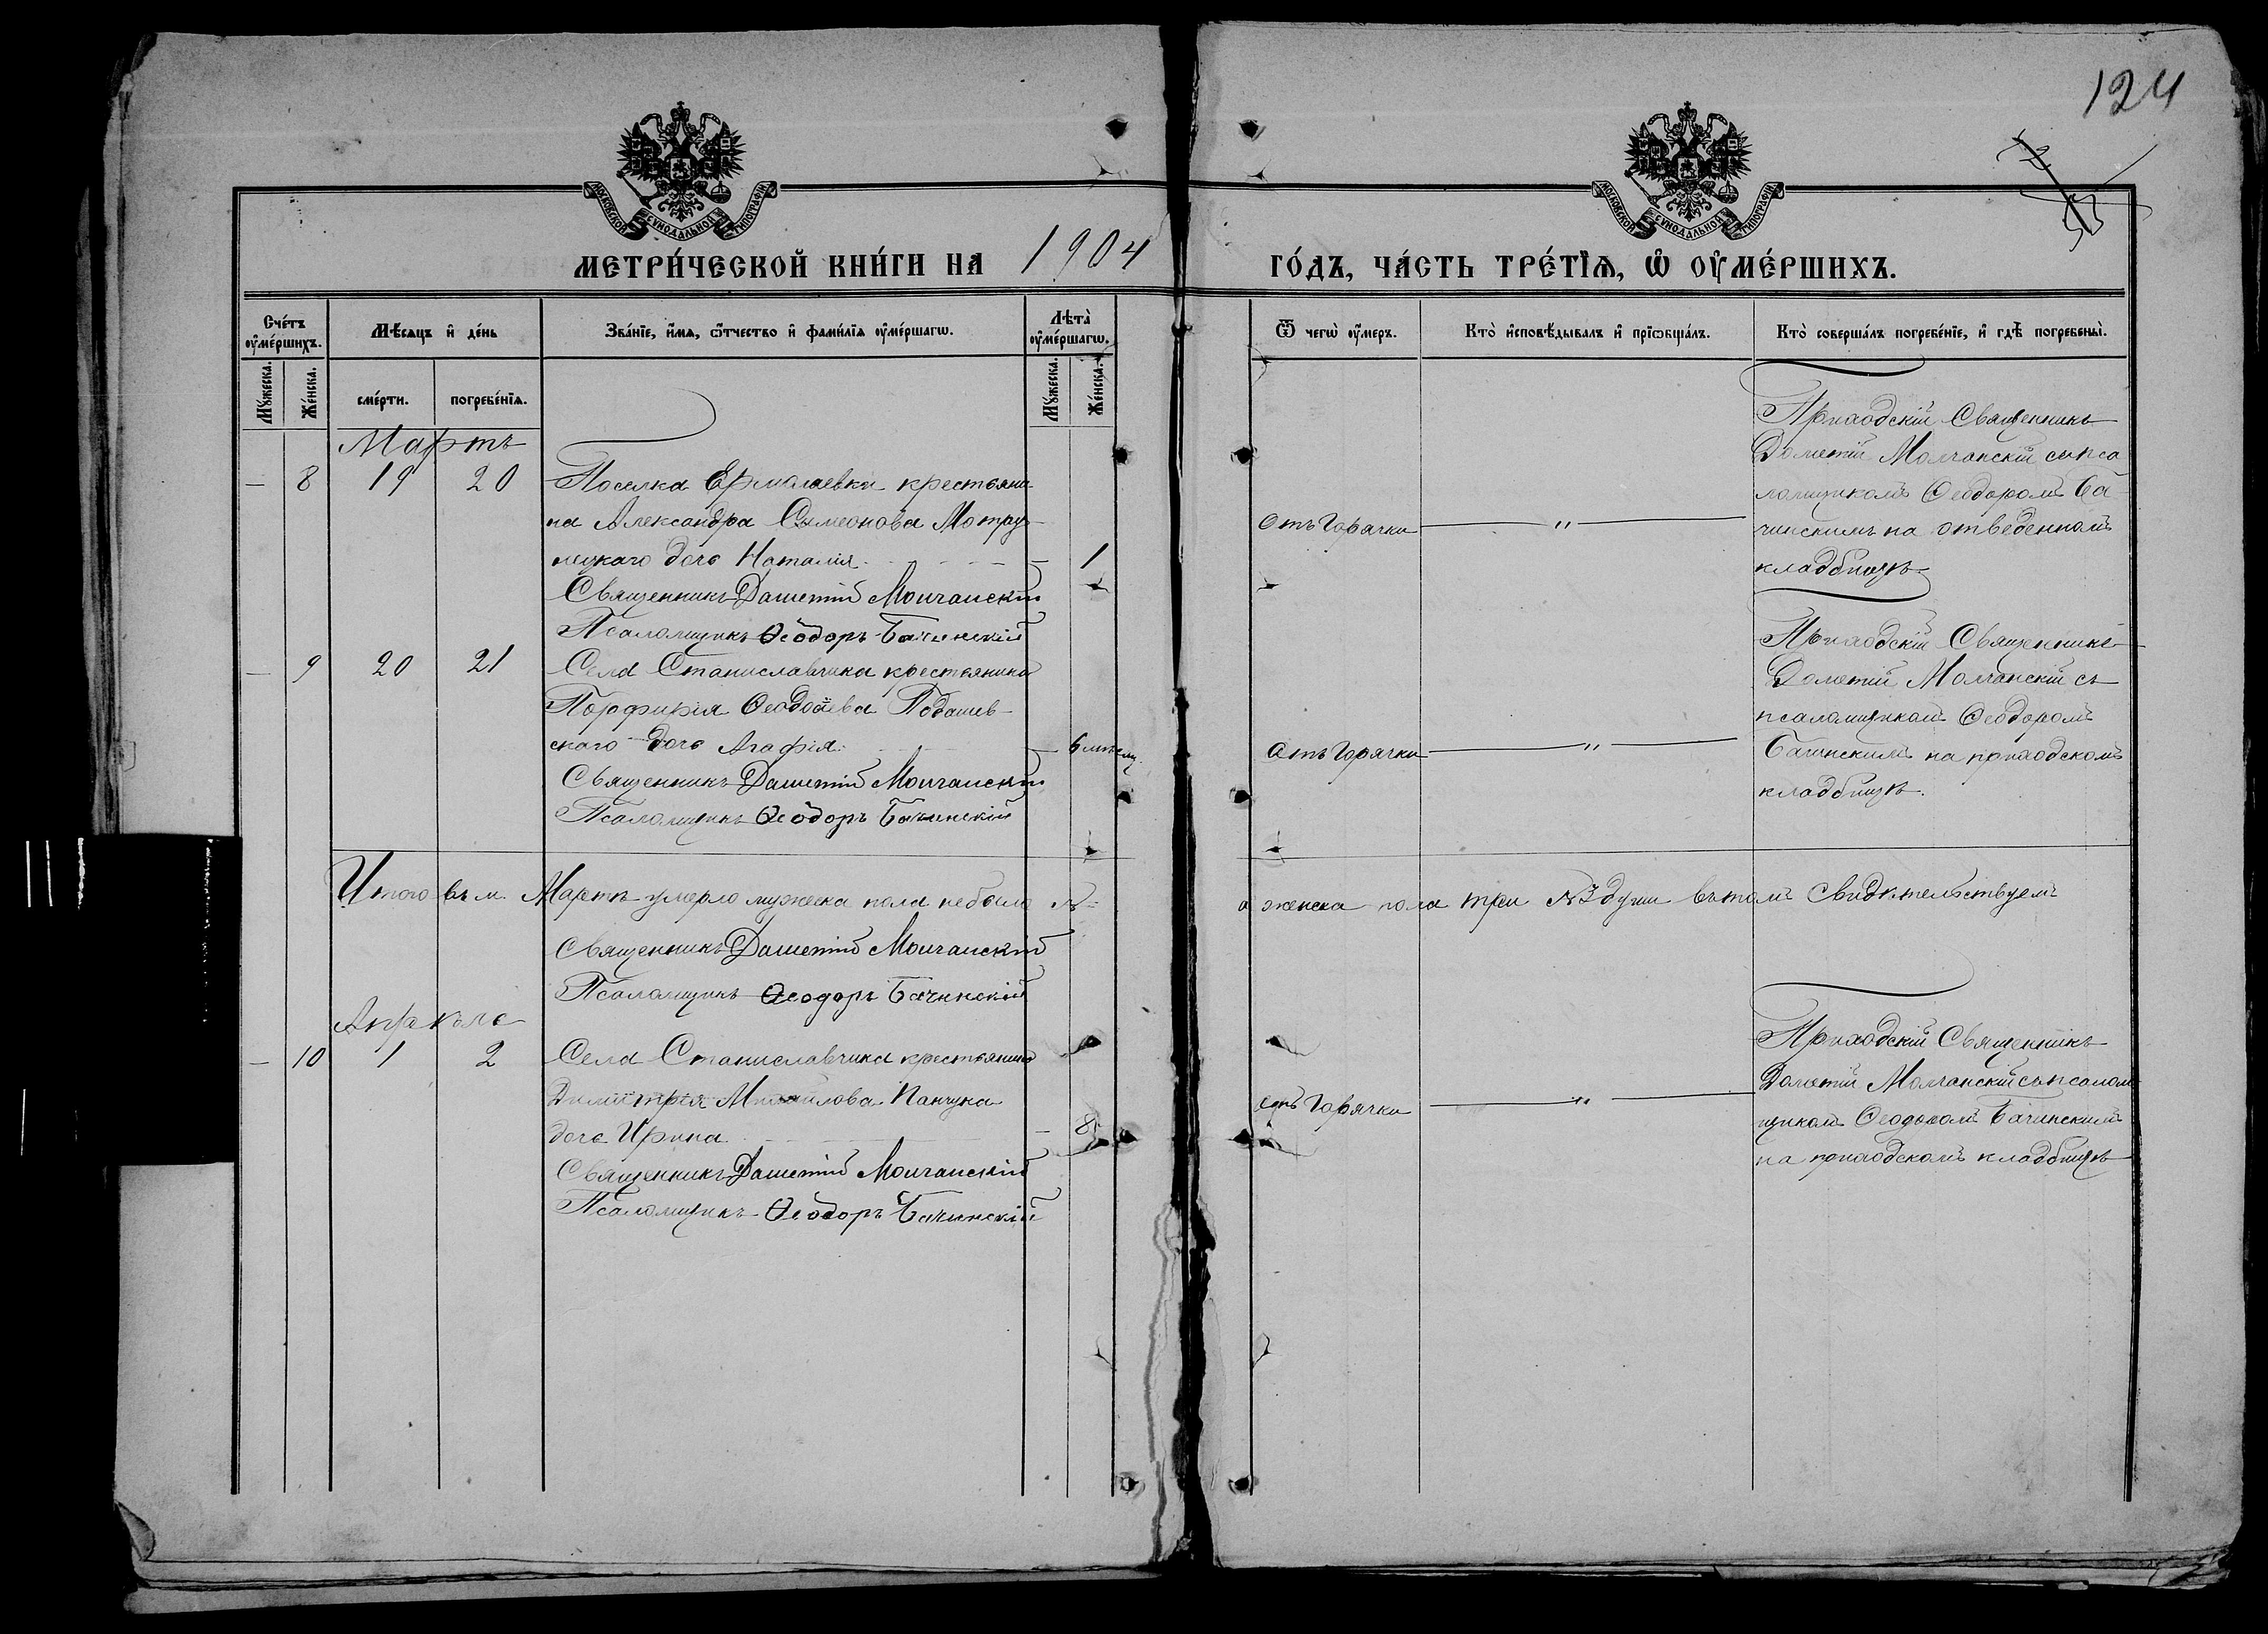 124
МОСКОВСКОЙ СУНОДАЛЬНОЙ ТИПОГРАФІИ
МОСКОВСКОЙ СУНОДАЛЬНОЙ ТИПОГРАФІИ
МЕТРИ́ЧЕСКОЙ КНИ́ГИ НА 1904 ГО́ДЪ, ЧА́СТЬ ТРЕ́ТІѦ, Ѡ҆ ОУ҆МЕ́РШИХЪ.
Сче́тъ оу҆ме́ршихъ.
Мѣ́сѧцъ и҆ де́нь
Зва́нїе, и҆́мѧ, ѻ҆́тчество и҆ фами́лїѧ оу҆ме́ршагѡ.
Лѣта̀ оу҆ме́ршагѡ.
Ѿ чегѡ̀ оу҆́меръ.
Кто̀ и҆сповѣ́дывалъ и҆ прїѡбща́лъ.
Кто̀ соверша́лъ погребе́нїе, и҆ гдѣ̀ погребены̀.
Мꙋ́жеска.
Же́нска.
сме́рти.
погребе́нїѧ.
Мꙋ́жеска.
Же́нска.
Мартъ
— 8 19 20 Поселка Ермашевки крестьяни-
на Александра Симеонова Мотру-
мецкаго дочь Наталія — 1
Священникъ Дометій Молчанскій
Псаломщикъ Ѳеодоръ Бачинскій
Отъ Горячки — " —
Приходскій Священникъ
Дометій Молчанскій съ пса
ломщикомъ Ѳеодоромъ Ба-
чинскимъ на отведенномъ
кладбищѣ
— 9 20 21 Села Станиславчика крестьянина
Порфирія Ѳеодосіева Подашев-
скаго дочь Агафія — 6 мѣсяц.
Священникъ Дометій Молчанскій
Псаломщикъ Ѳеодоръ Бачинскій
Отъ Горячки — " —
Приходскій Священникъ
Дометій Молчанскій съ
псаломщикомъ Ѳеодоромъ
Бачинскимъ на приходскомъ
кладбищѣ.
Итого въ м. Мартѣ умерло мужеска пола небыло а женска пола три №3 души въ томъ Свидѣтельствуемъ
Священникъ Дометій Молчанскій
Псаломщикъ Ѳеодоръ Бачинскій
Апрѣль
— 10 1 2 Села Станиславчика крестьянина
Димитрія Михайлова Панчука
дочь Ирина — 8
Священникъ Дометій Молчанскій
Псаломщикъ Ѳеодоръ Бачинскій
Отъ Горячки — " —
Приходскій Священникъ
Дометій Молчанскій съ псалом-
щикомъ Ѳеодоромъ Бачинскимъ
на приходскомъ кладбищѣ